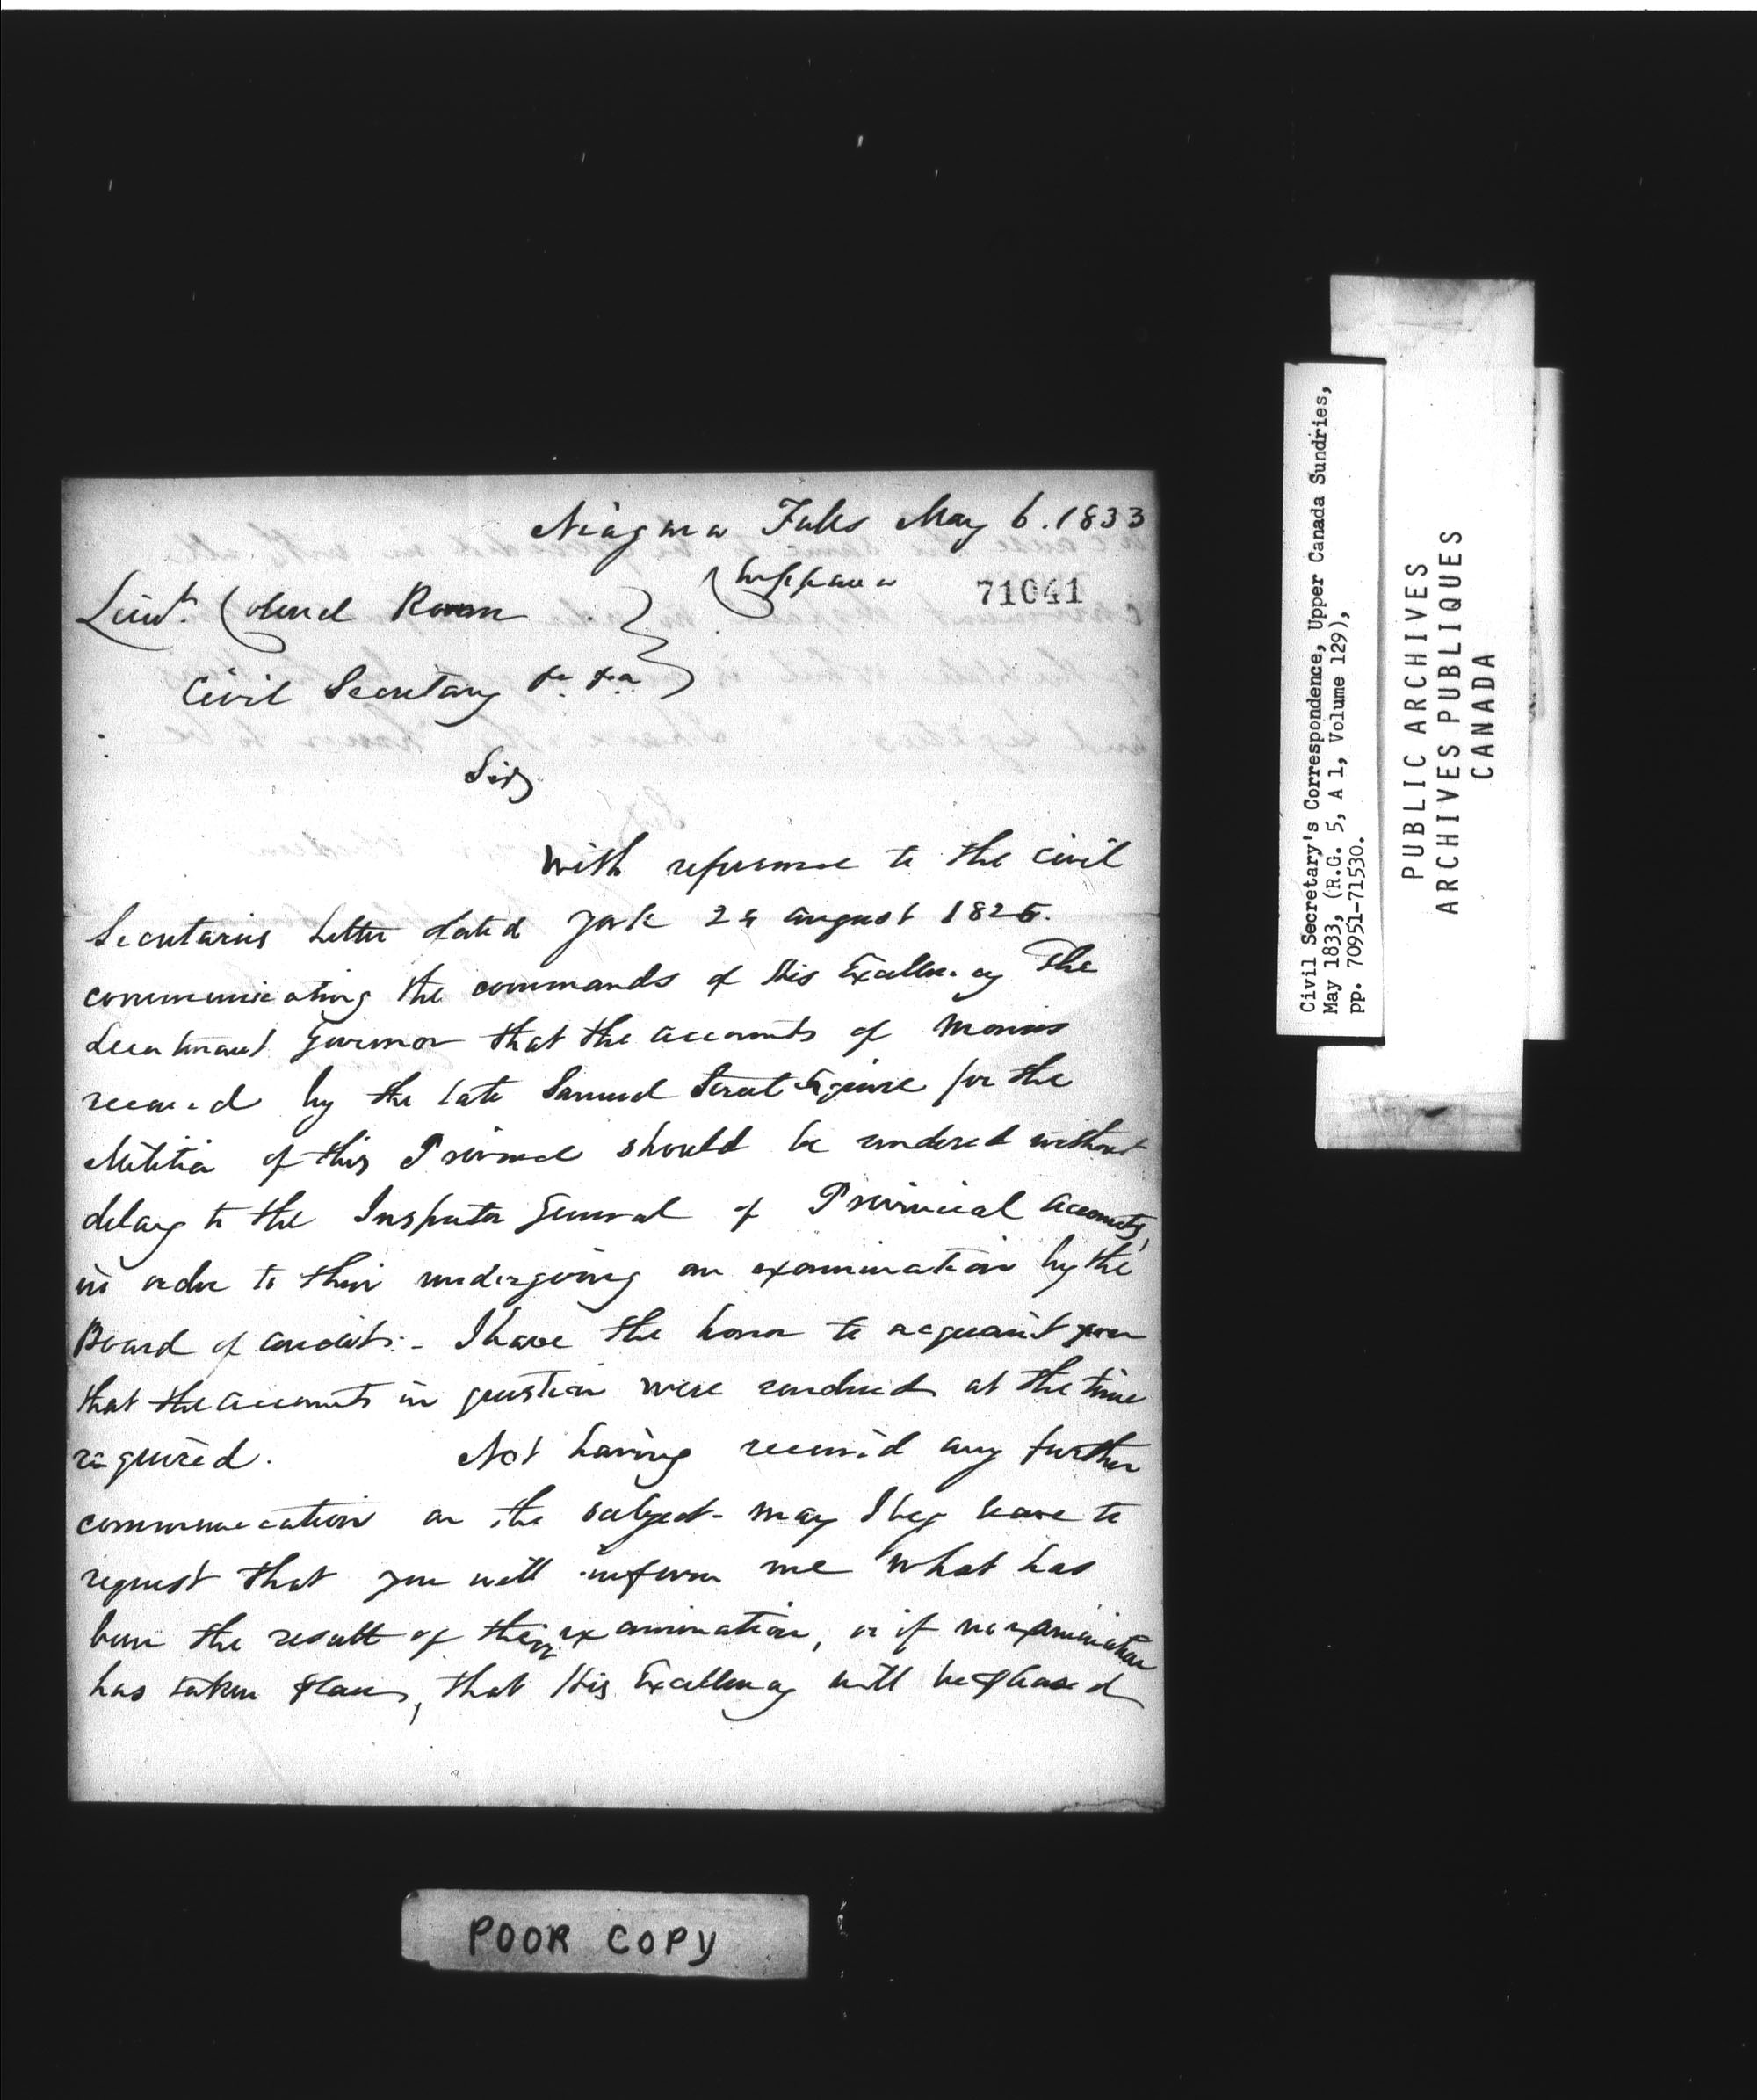 Niagara Falls May 6. 1833
Chippawa
71041
Lieut. Colonel Rowan
Civil Secretary &c &c
Sir,
With reference to the Civil
Secretaries Letter dated York 24 August 1825.
communicating the commands of His Excellency The
Lieutenant Governor that the accounts of Monies
received by the late Samuel Street Esquire for the
Militia of this Province should be rendered without
delay to the Inspector General of Provincial Accounts,
in order to their undergoing an examination by the
Board of Audit:- I have the honor to acquaint you
that the accounts in question were rendered at the time
required. Not having received any further
communication on the subject- may I beg leave to
request that you will inform me what has
been the result of their examination, or if no examination
has taken place, that His Excellency will be pleased
POOR COPY
Civil Secretary's Correspondence, Upper Canada Sundries,
May 1833, (R.G. 5, A 1, Volume 129),
pp. 70951-71530.
PUBLIC ARCHIVES
ARCHIVES PUBLIQUES
CANADA